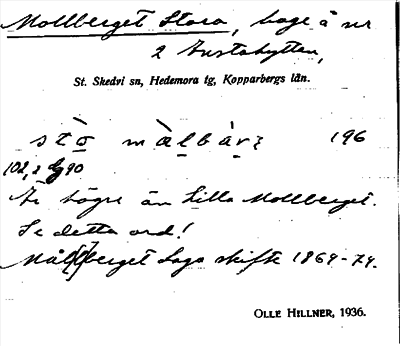 Mollberget Stora, berg å nr
2 Gustabytten,
St. Skedvi sn, Hedemora tg, Kopparbergs län.
stò màlbàrʒ 196
102,2 Lg 90
Är högre än Lilla Mollberget.
Se detta ord!
Mållberget Laga skifte 1864-74.
OLLE HILLNER, 1936.